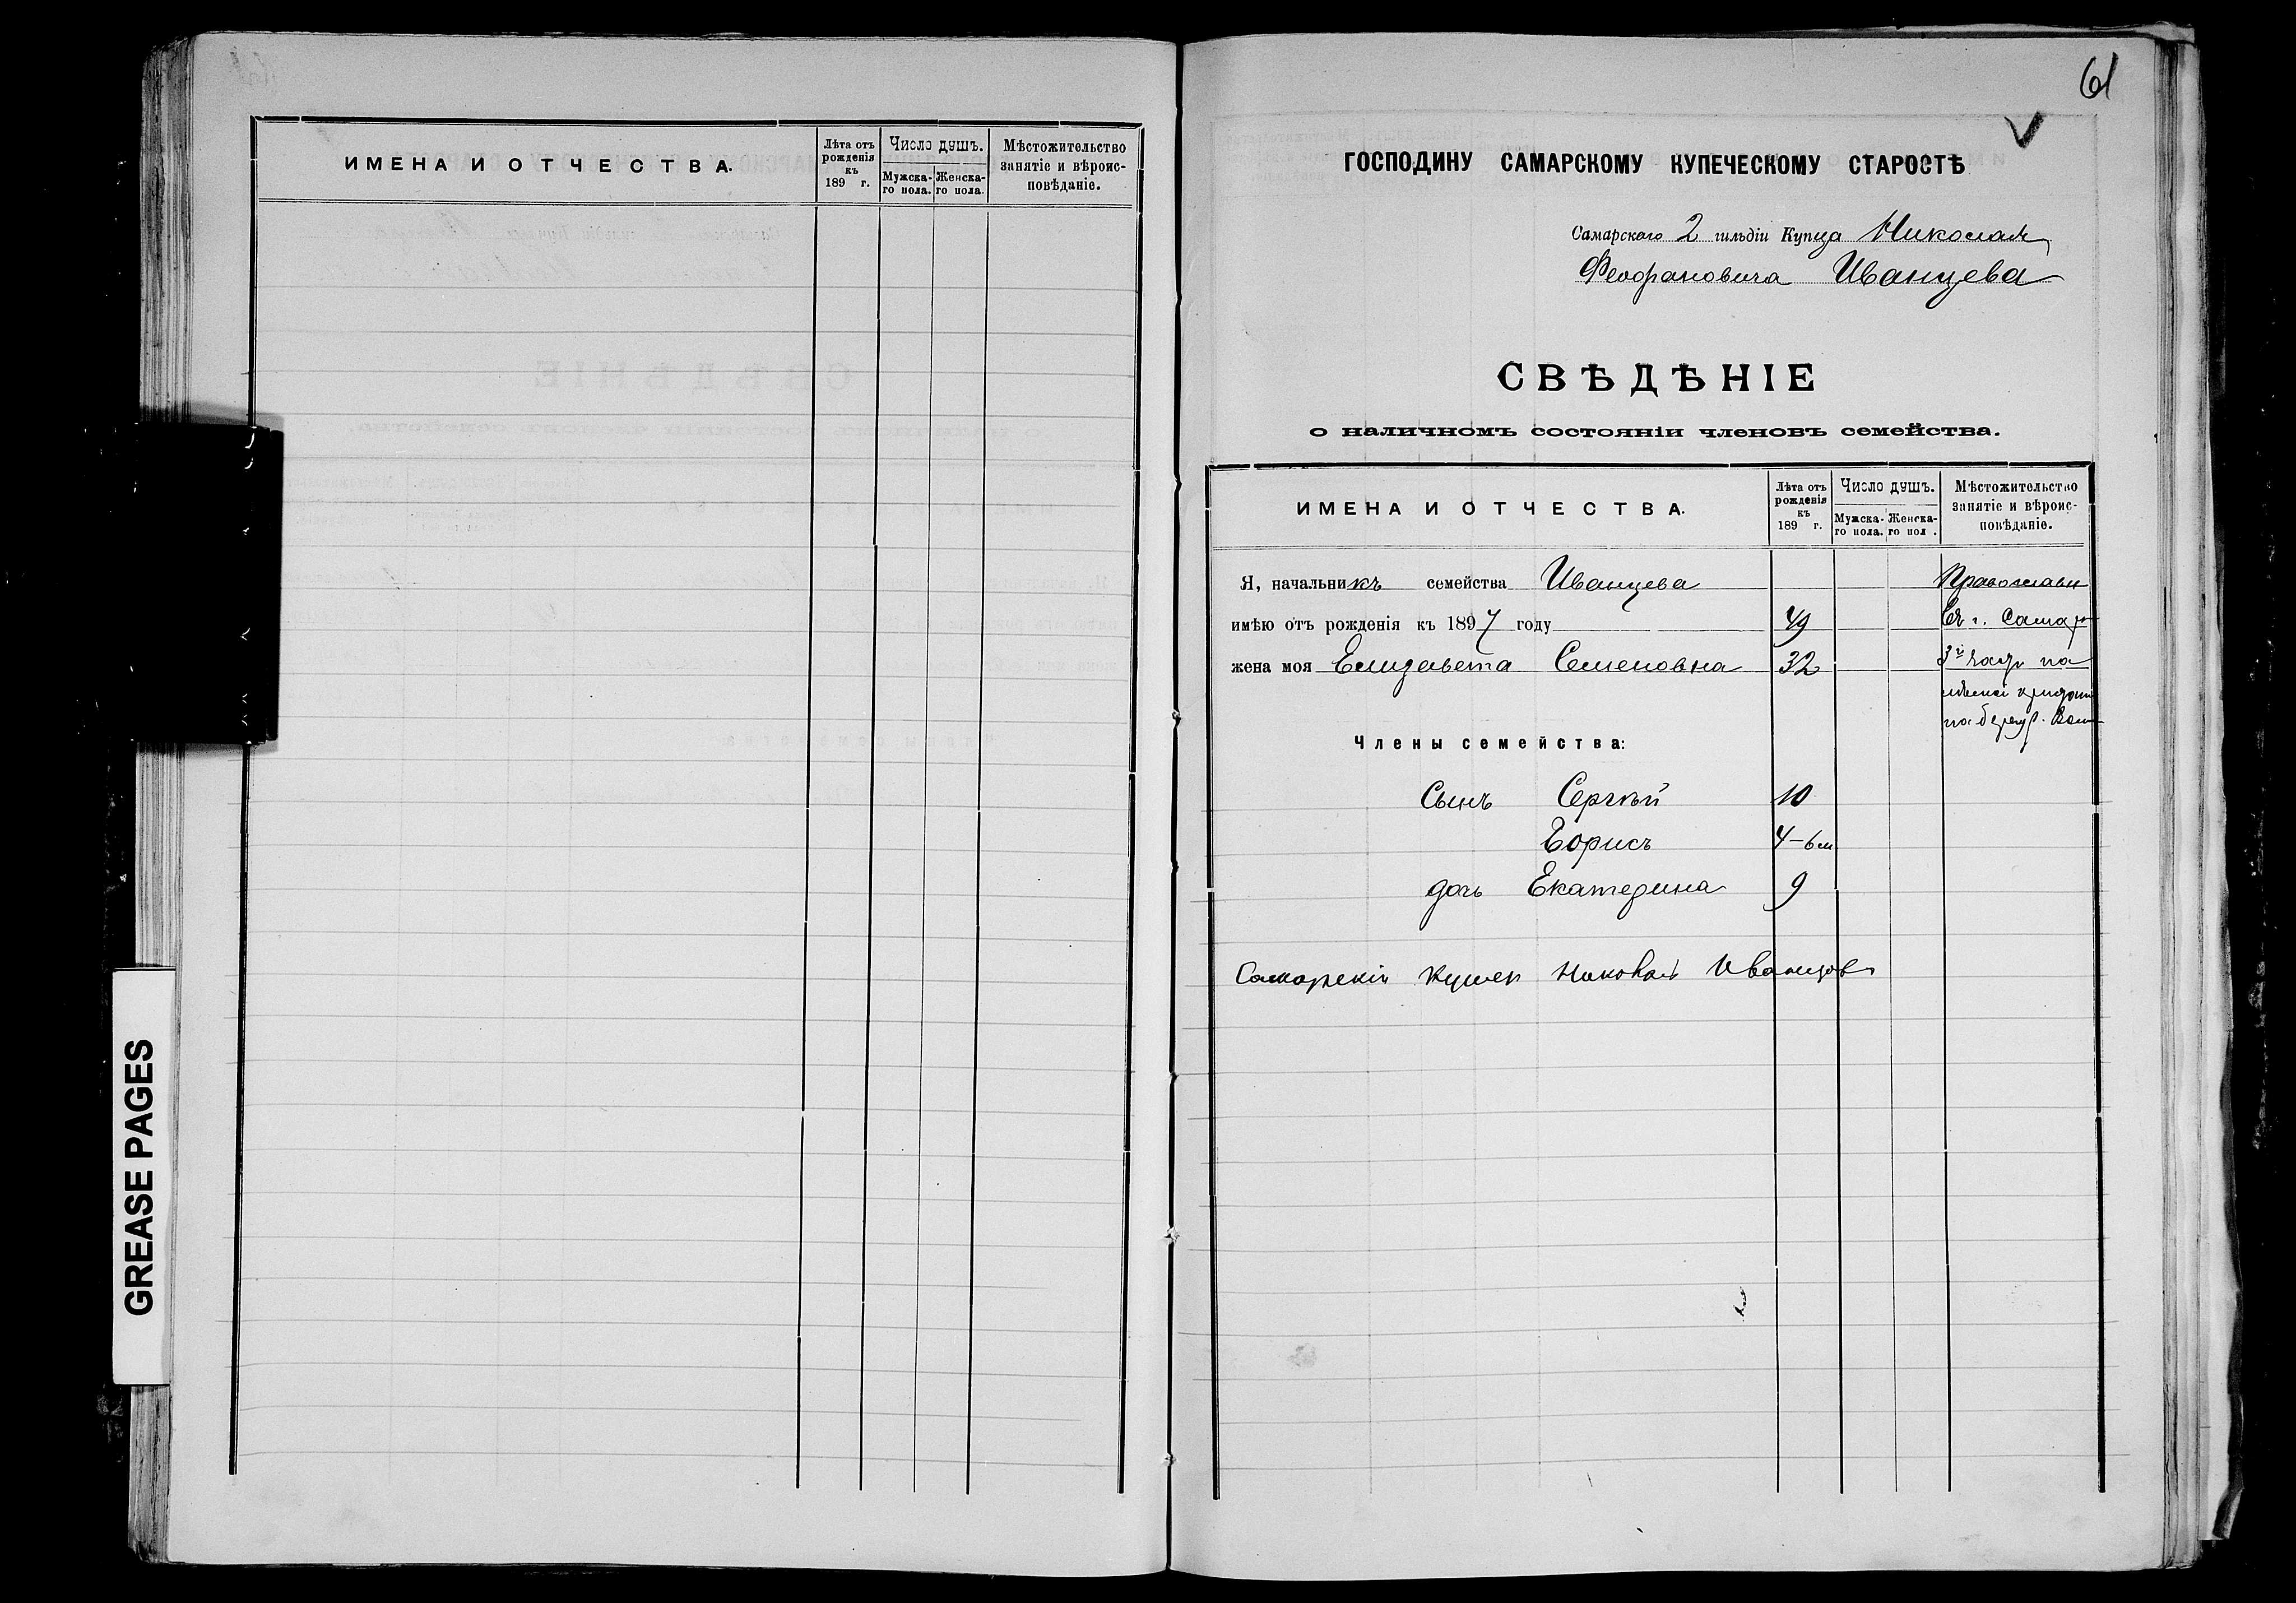 ИМЕНА И ОТЧЕСТВА.
Лѣта отъ рожденія къ 189 г.
Число душъ.
Мужска-го пола.
Женска-го пола.
Мѣстожительство занятіе и вѣроис-повѣданіе.
GREASE PAGES
61
ГОСПОДИНУ САМАРСКОМУ КУПЕЧЕСКОМУ СТАРОСТѢ
Самарского 2 гильдіи Купца Николая
Феофановича Иванцева
СВѢДѢНІЕ
о наличномъ состояніи членовъ семейства.
ИМЕНА И ОТЧЕСТВА.
Лѣта отъ рожденія къ 189 г.
Число душъ.
Мужска-го пола.
Женска-го пол .
Мѣстожительство занятіе и вѣроис-повѣданіе.
Я, начальникъ семейства Иванцева Православн
имѣю отъ рожденія къ 1897 году 49 Въ г. Самар
жена моя Елизавета Семеновна 32 3й части на
Члены семейства:
Сынъ Сергѣй 10
Борисъ 4-6 м
дочь Екатерина 9
Самарскій Купец Николай Иванцовъ